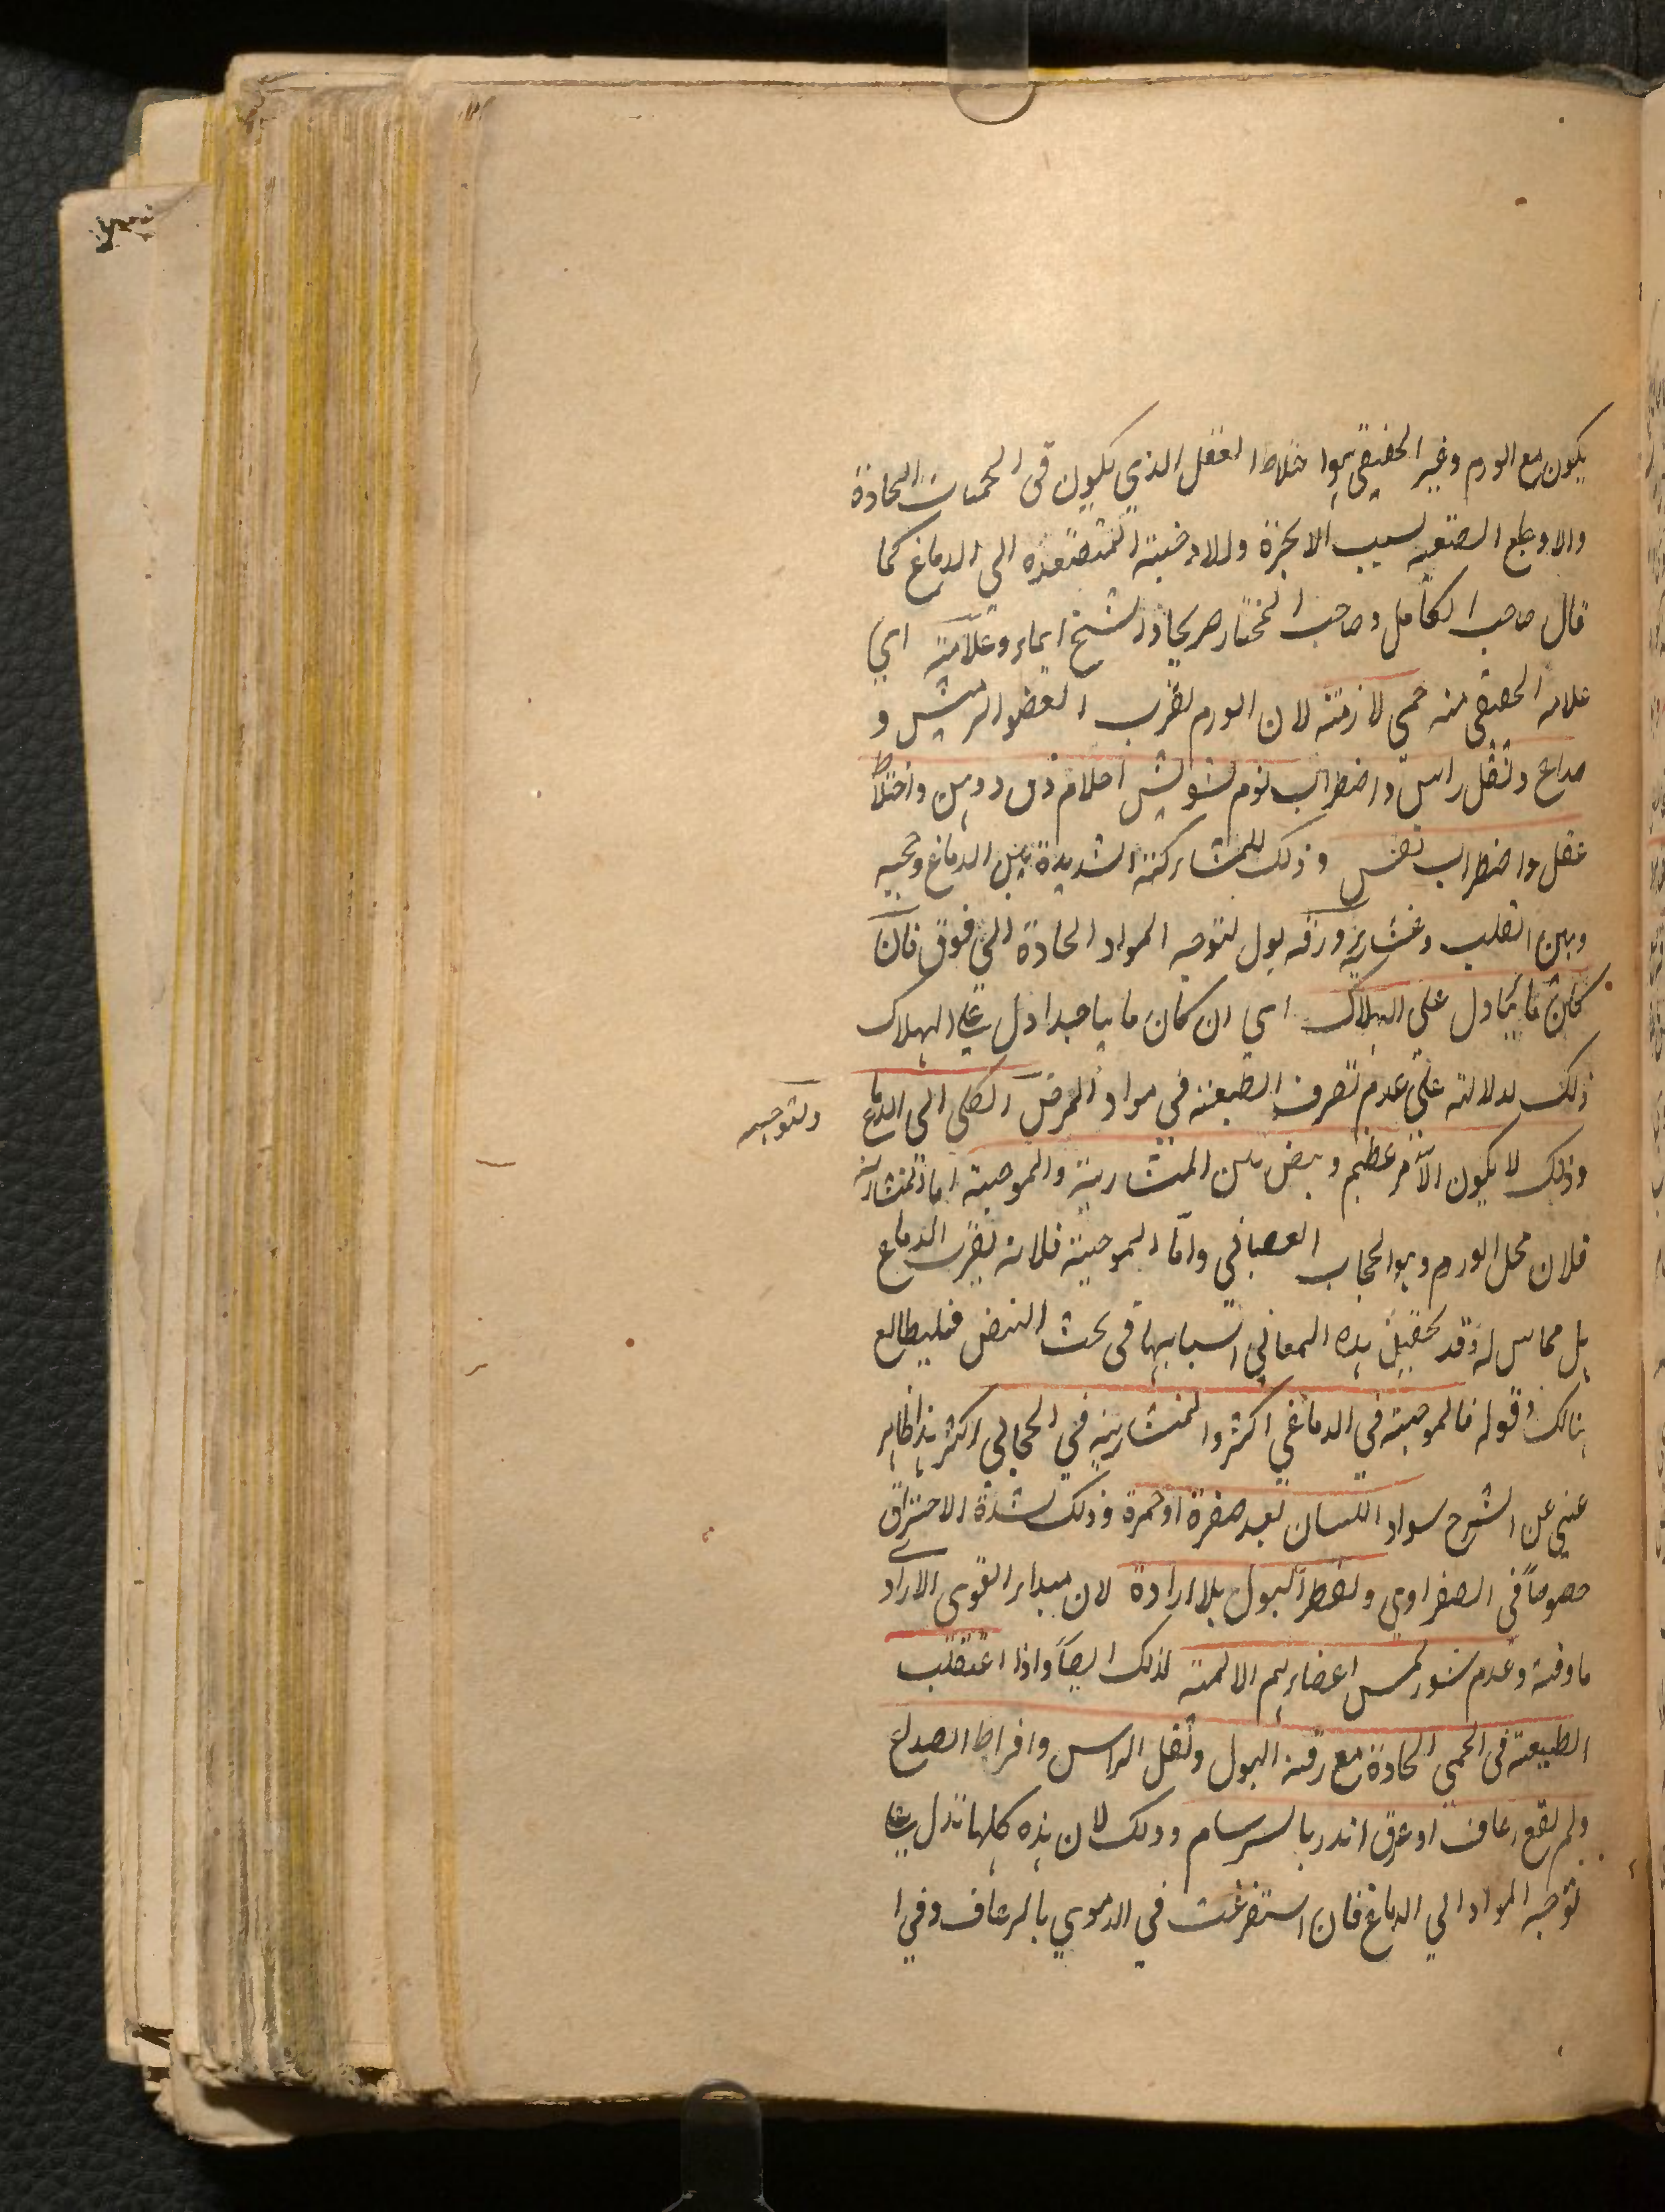 يكون مع الورم وغير الحقيقي هو اختلاط العقل الذي يكون فى الحميات الحادة
والاوجاع الصعبة بسبب الابخرة والادخنة المتصعدة الى الدماغ كما
قال صاحب الكامل وصاحب المختار صريحا والشيخ ايماء وعلامته اي
علامة الحقيقى منه حمى لازمة لان الورم بقرب العضو الرئيس و
صداع وثقل راس واضطراب نوم لتشويش احلام واختلاط
عقل واضطراب نفس وذلك للمشاركة الشديدة بين الدماغ وحجبه
وبين القلب ورقة بول لتوجه المواد الحادة الى فوق فان
كان مائيا دل على الهلاك اي ان كان مائيا جدا دل على الهلاك
ذلك لدلالته على عدم تصرف الطبيعة في مواد المرض الكلى الى الدماغ
ولتوجهه
وذلك لا يكون الا لامر عظيم ونبض بين المنشارية والموجية اما المنشارية
فلان محل الورم وهو الحجاب العصبانى واما الموجية فلانه بقرب الدماغ
بل مماس له وقد هذه المعاني اسبابها فى بحث النبض فليطالع
هنالك وقوله فالموجية في الدماغي اكثر والمنشارية في الحجابي اكثر هذا ظاهر
غني عن الشرح سواد اللسان بعد صفرة او حمرة وذلك لشدة الاحتراق
خصوصاً فى الصفراوي وتقطر البول بلا ارادة لان مبداء القوى الارادية
ماوفة وعدم شعور لمس اعضائهم الالمة لذلك ايضاً واذا اعتقلت
الطبيعة فى الحمى الحادة مع رقة البول وثقل الراس وافراط الصداع
ولم يقع رعاف او عرق انذر بالسرسام وذلك لان هذه كلها تدل على
توجه المواد الي الدماغ فان استفرغت في الدموي بالرعاف وفي ا